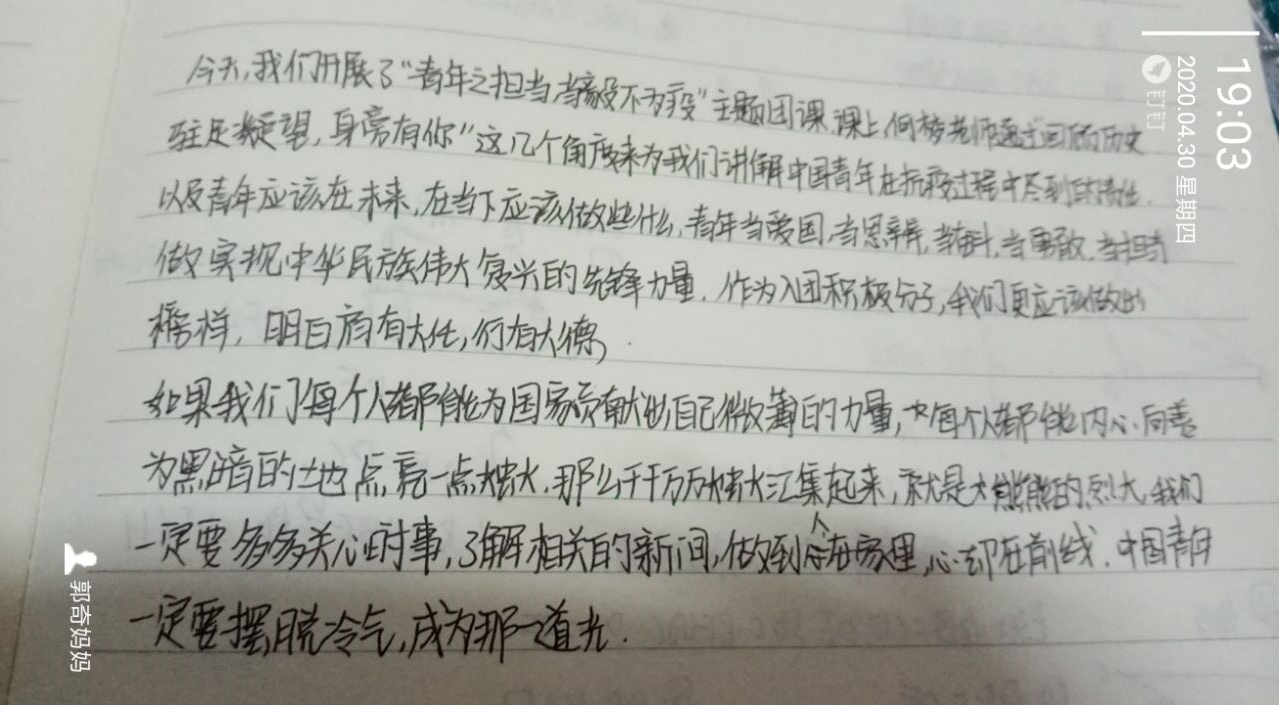 今天,我们开展了“青年之担当,当疫不为疫”主题团课,课上何梅老师通过回顾历史
驻足凝望,身旁有你”这几个角度来为我们讲解中国青年在抗疫过程中尽到的责任.
以及青年应该在未来,在当下应该做些什么,青年当爱国,当思辨,当奋斗,当勇敢,当担当
做实现中华民族伟大复兴的先锋力量.作为入团积极分子,我们更应该做出
榜样,明白肩有大任,行有大德,
如果我们每个人都能为国家贡献出自己微薄的力量,中每个人都能内心向善
为黑暗的土地点亮一点烛火,那么千千万万烛火汇集起来,就是大熊熊的烈火,我们
一定要多多关心时事,了解相关的新闻,做到人在家里,心却在前线.中国青年
一定要摆脱冷气,成为那一道光.
19:03
2020.04.30 星期四
钉钉
郭奇妈妈